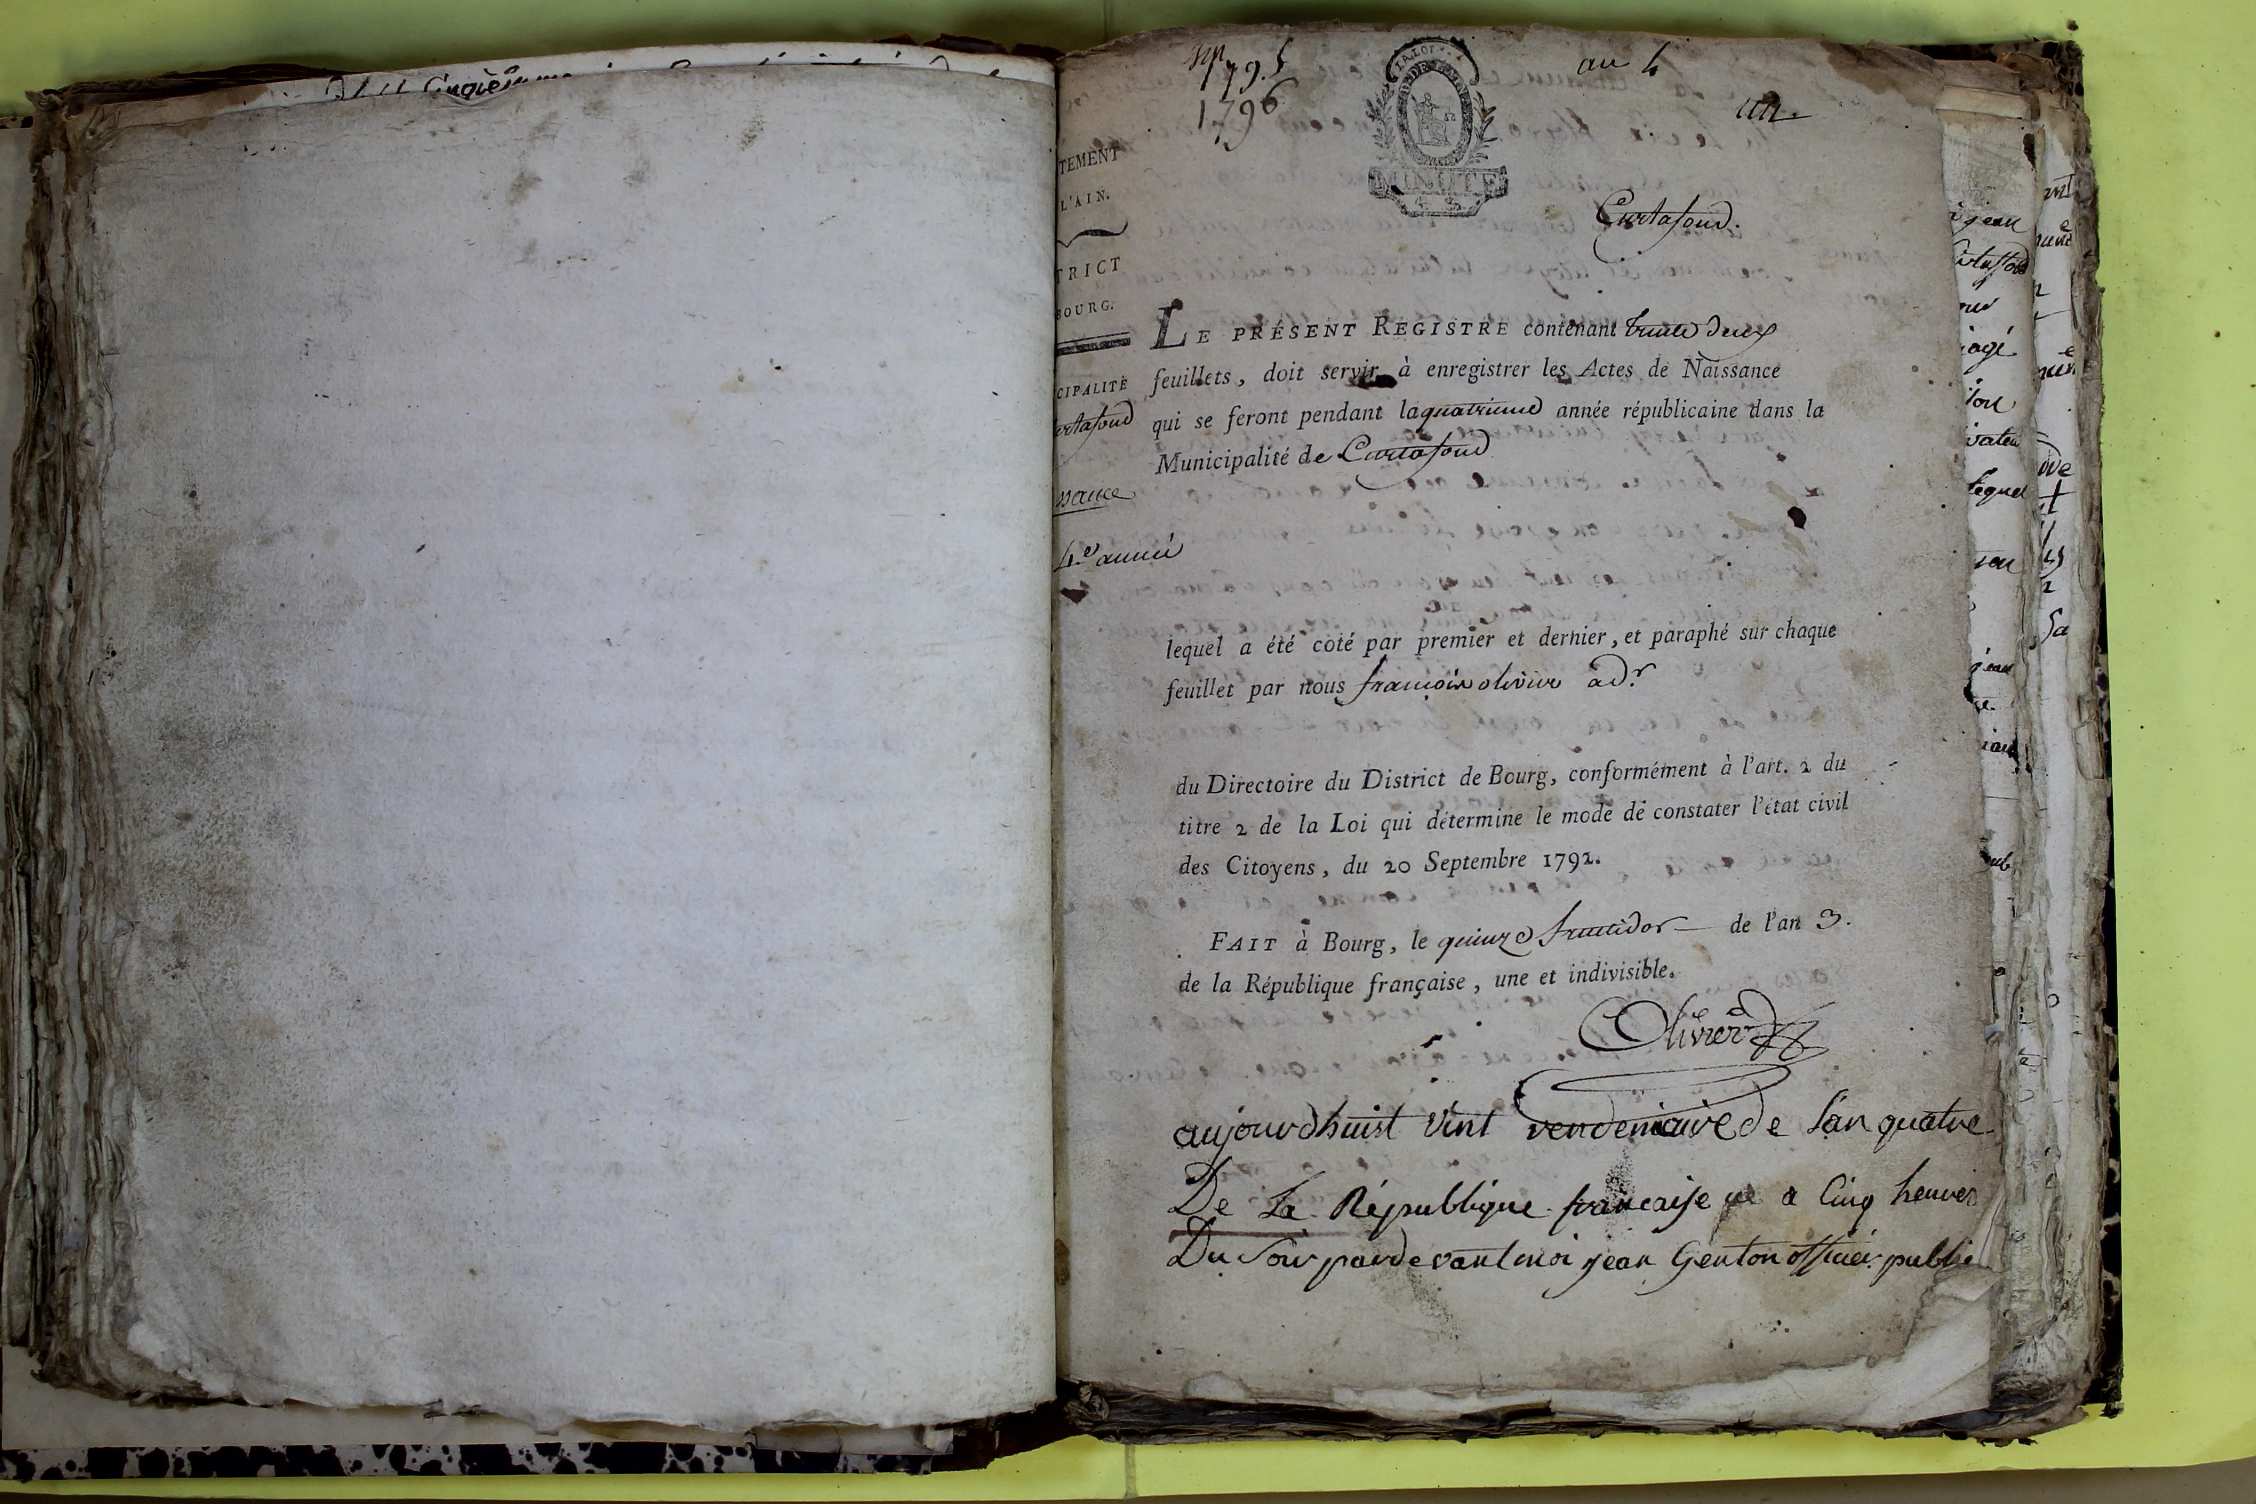 1795
1796
an 4
un.
LA LOI
MINUTE
Curtafond.
TEMENT
L'AIN.
TRICT
BOURG.
CIPALITÉ
urtafond
ssance
4.e année
LE PRÉSENT REGISTRE contenant trente deux
feuillets, doit servir à enregistrer les Actes de Naissance
qui se feront pendant la quatrieme année républicaine dans la
Municipalité de Curtafond
lequel a été coté par premier et dernier, et paraphé sur chaque
feuillet par nous francois olivier adr
du Directoire du District de Bourg, conformément à l'art. 2 du
titre 2 de la Loi qui détermine le mode de constater l'état civil
des Citoyens, du 20 Septembre 1792.
FAIT à Bourg, le quinze fructidor de l'an 3.
de la République française, une et indivisible.
Olivier
aujourdhuist vint vendemiaire de lan quatre
De La République francaise a Cinq heures
Du soir pardevant moi jean Genton officier public